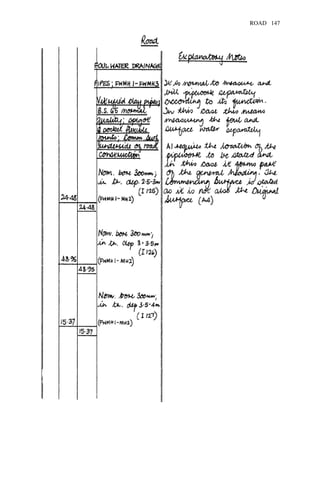 ROAD 147
Road
Explanatory Notes
FOUL WATER DRAINAGE
PIPES; FWMH 1 - FWMH3
Vitrified clay pipes
B.S. 65 normal
quality; spigot
& socket flexible
joints; Comm. surf.
underside of road
construction
Nom. bore 300mm;
in tr. dep. 2·5-3m
(I 125)
24·48
(FWMH 1-MH2)
24·48
Nom. bore 300mm;
in tr. dep 3-3·5m
(I 126)
48·95
(FWMH 1-MH2)
48·95
Nom. bore 300mm;
in tr. dep 3·5-4m
(I 127)
15·37
(FWMH 1-MH3)
15·37
It is normal to measure and
bill pipework separately
according to its function.
In this case this means
measuring the foul and
surface water separately
A1 require the location of the
pipework to be stated and
in this case it forms part
of the general heading. The
Commencing Surface is stated
as it is not also the Original
Surface (A4)